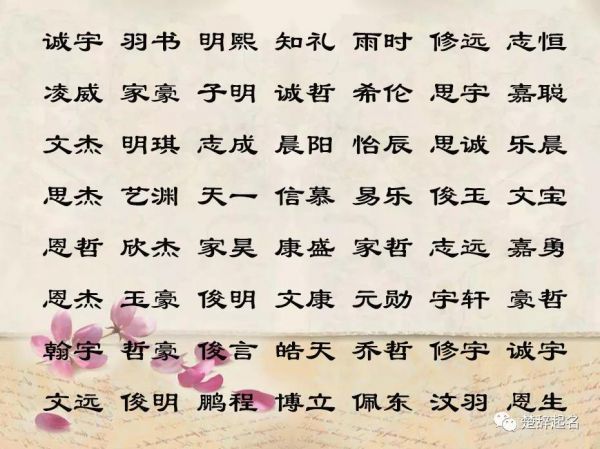 诚宇 羽书 明熙 知礼 雨时 修远 志恒
凌威 家豪 子明 诚哲 希伦 思宇 嘉聪
文杰 明琪 志成 晨阳 怡辰 思诚 乐晨
思杰 艺渊 天一 信慕 易乐 俊玉 文宝
恩哲 欣杰 家昊 康盛 家哲 志远 嘉勇
恩杰 玉豪 俊明 文康 元勋 宇轩 豪哲
翰宇 哲豪 俊言 皓天 乔哲 修宇 诚宇
文远 俊明 鹏程 博立 佩东 汶羽 恩生
楚辞起名